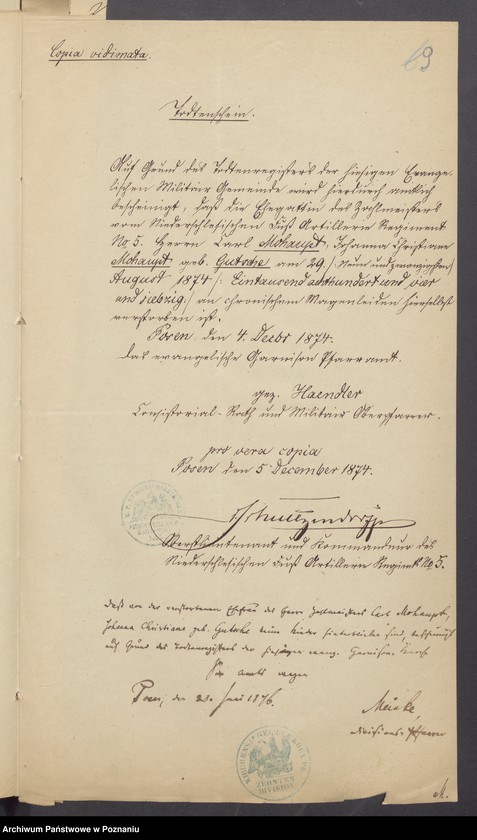 Copia vidimata.
69
Todtenschein.
Auf Grund des Todtenregisters der hiesigen Evange-
lischen Militair Gemeinde wird hierdurch amtlich
bescheinigt, daß die Ehegattin des Zahlmeisters
vom Niederschlesischen Fuß Artillerie Regiment
No 5. Herrn Carl Mohaupt, Johanna Christiane
Mohaupt geb. Gutsche am 29. /: Neun und zwanzigsten :/
August 1874 /: Eintausend achthundert und vier
und siebzig :/ an chronischem Magenleiden hierselbst
verstorben ist.
Posen den 4. Decbr 1874.
Das evangelische Garnison Pfarramt.
gez. Haendler
Consistorial-Rath und Militair Oberpfarrer.
pro vera copia
Posen den 5 December 1874.
Oberstlieutenant und Kommandeur des
Niederschlesischen Fuß Artillerie Regimts No 5.
Daß von der verstorbenen Ehefrau des Herrn Zahlmeisters Carl Mohaupt,
Johanna Christiane geb. Gutsche keine Kinder hinterblieben sind, bescheinigt
auf Grund des Todtenregisters der hiesigen evang. Garnison
Von amts wegen
Posen, den Juni 1876.
Meinke,
Divisions-Pfarrer
KIRCHENSIEGEL DER KOEN. PR.
ZEHNTEN
DIVISION
M.
Archiwum Państwowe w Poznaniu